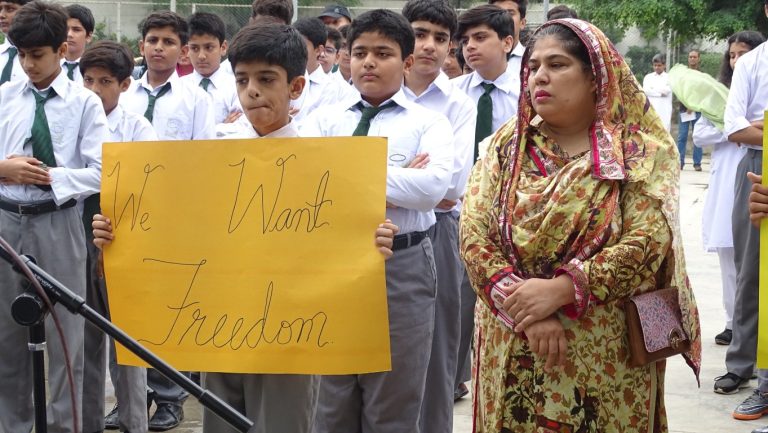 We Want
Freedom.